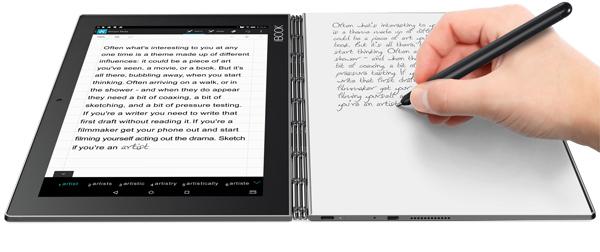 Often what's interesting to you at any
one time is a theme made up of different
influences: it could be a piece of art
you've seen, a movie, or a book. But it's
all there, bubbling away, when you start
thinking. Often arriving on a walk, or in
the shower - and when they do appear
they need a bit of coaxing, a bit of
sketching, and a bit of pressure testing.
If you're a writer you need to write that
first draft without reading it. If you're a
filmmaker get your phone out and start
filming yourself acting out the drama. Sketch
if you're an artist
1 artist 2 artists 3 artistic 4 artistry 5 artistically 6 artiste
BOOK
Often what's interesting to
is a theme made up of
could be a piece of art
book. But it's all there,
start thinking. Often
shower - and when
bit of coaxing, a bit
pressure testing. If
write that first draft
filmmaker get your
filming yourself
you're an artist